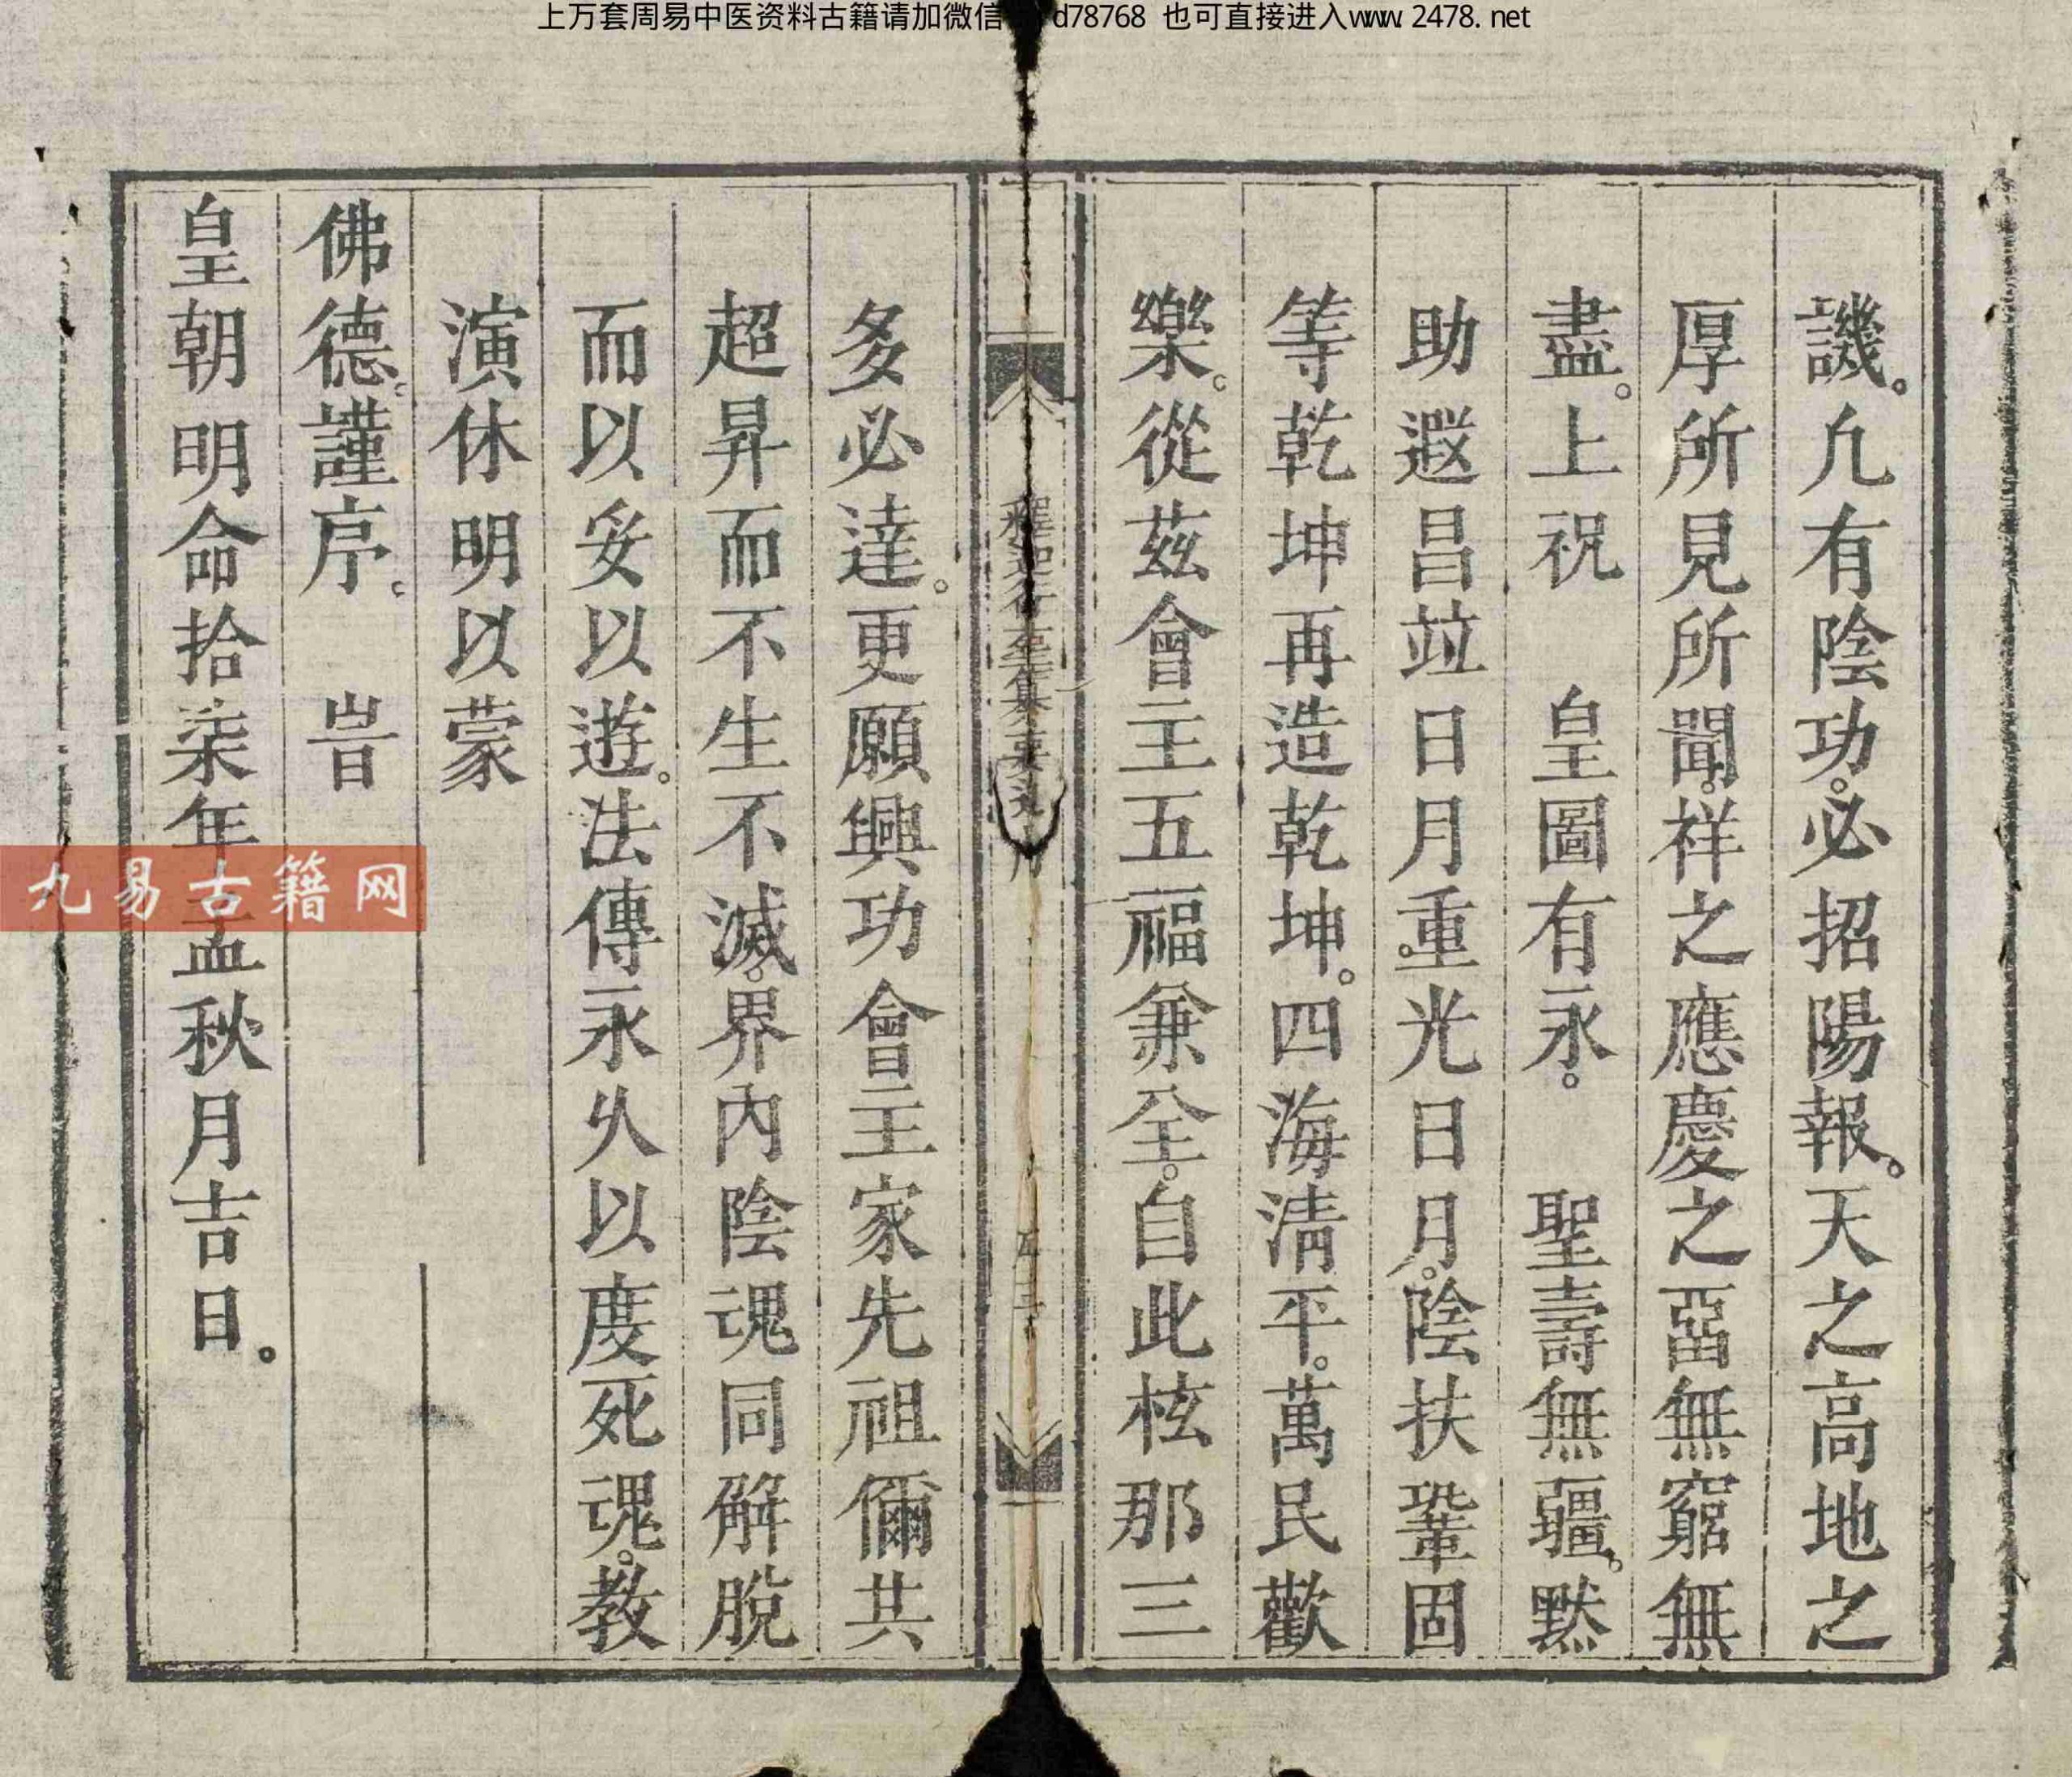 上万套周易中医资料古籍请加微信 d78768 也可直接进入www.2478.net
譏。凢有陰功。必招陽報。天之高地之
厚所見所聞。祥之應慶之亞無窮無
盡。上祝 皇圖有永。 聖壽無疆。黙
助遐昌竝日月。重光日月。陰扶鞏固
等乾坤再造乾坤。四海淸平。萬民歡
樂。從茲會主五福兼全。自此檀那三
多必達。更願興功會主家先祖儞共
超昇而不生不滅。界內陰魂同解脫
而以妥以遊。法傳永久以度死魂。教
演休明以蒙
佛德。謹序。 旹
皇朝明命拾柒年孟秋月吉日。
九易古籍网